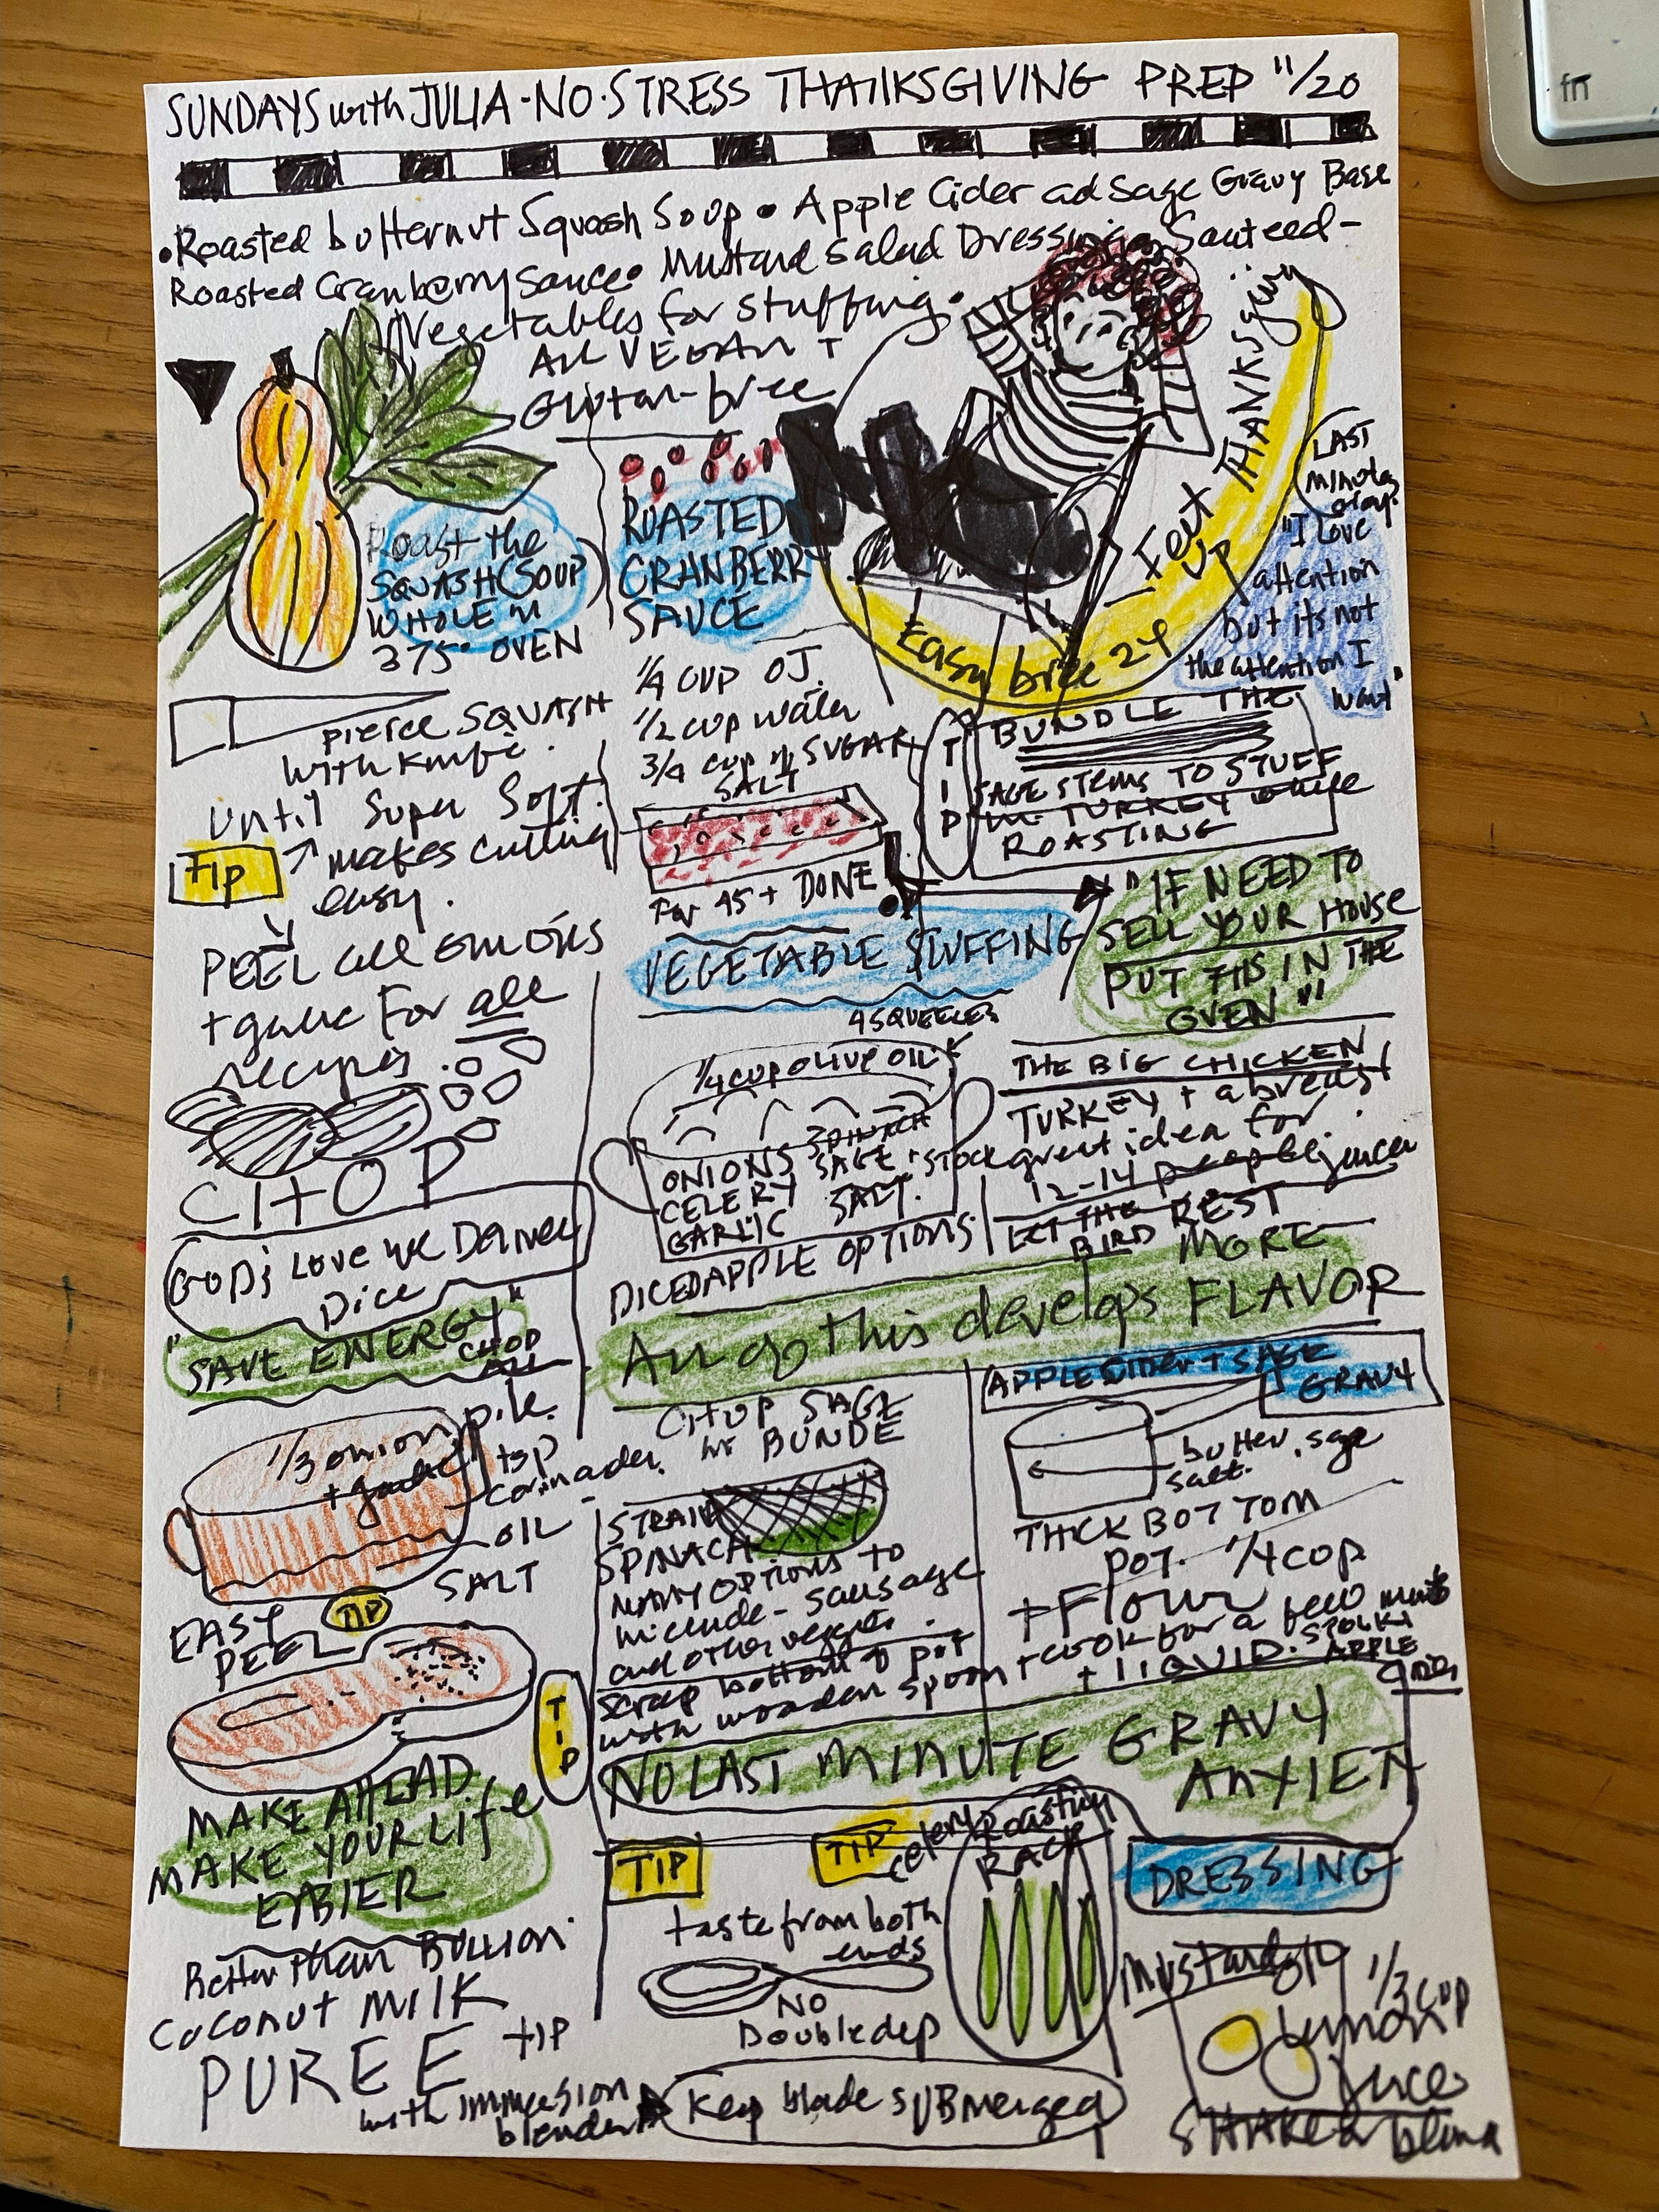 SUNDAYS with JULIA - NO - STRESS THANKSGIVING PREP 11/20
• Roasted butternut Squash Soup • Apple Cider ad Sage Gravy Base
Roasted Cranberry Sauce • Mustard Salad Dressing • Sauteed -
Vegetables for stuffing •
ALL VEGAN +
Gluten-free
Roast the
SQUASH (SOUP)
WHOLE in
375° OVEN
pierce SQUASH
with knife.
until super soft.
TIP
makes cutting
easy.
PEEL all onions
+ garlic for all
recipes.
CHOP
GOD's Love We Deliver
Dice
"SAVE ENERGY"
CHOP
ALL
1/3 onion pile
+ garlic
tsp
coriander
OIL
SALT
EASY
PEEL
TIP
MAKE AHEAD.
MAKE YOUR Life
EASIER
TIP
Better than Bullion.
Coconut Milk
PUREE
TIP
with immersion
blender
Keep blade SUBmerged
ROASTED
CRANBERRY
SAUCE
1/4 CUP OJ.
1/2 cup water
3/4 cup SUGAR
SALT
For 45 + DONE
Feet
UP
THANKSgiving
Easy
LAST
minute
"I love
attention
but its not
the attention I
want"
TIP
BUNDLE THE
SAGE STEMS TO STUFF
in TURKEY while
ROASTING
"IF NEED TO
SELL YOUR HOUSE
PUT THIS IN THE
OVEN"
VEGETABLE STUFFING
4 SQUEEZES
1/4 cup OLIVE OIL
ONIONS
CELERY
GARLIC
SPINACH
SAGE + STOCK
SALT.
DICED APPLE OPTIONS
THE BIG CHICKEN
TURKEY + a breast
great idea for
12-14 people
juices
LET THE
BIRD REST
MORE
All of this develops FLAVOR
CHOP SAGE
in BUNDE
STRAIN
SPINACH
MANY OPTIONS to
include - sausage
and other veggies.
Scrap bottom of pot
with wooden spoon
APPLE Cider + SAGE
GRAVY
butter, sage
salt.
THICK BOTTOM
POT. 1/4 cup
+ Flour
+ cook for a few minutes
+ LIQUID.
APPLE
NO LAST MINUTE GRAVY
ANXIETY
TIP
taste from both
ends
NO
Double dip
TIP
celery Roasting
RACK
DRESSING
mustard
1/3 cup
lemon
juice
SHAKE & blend
fn